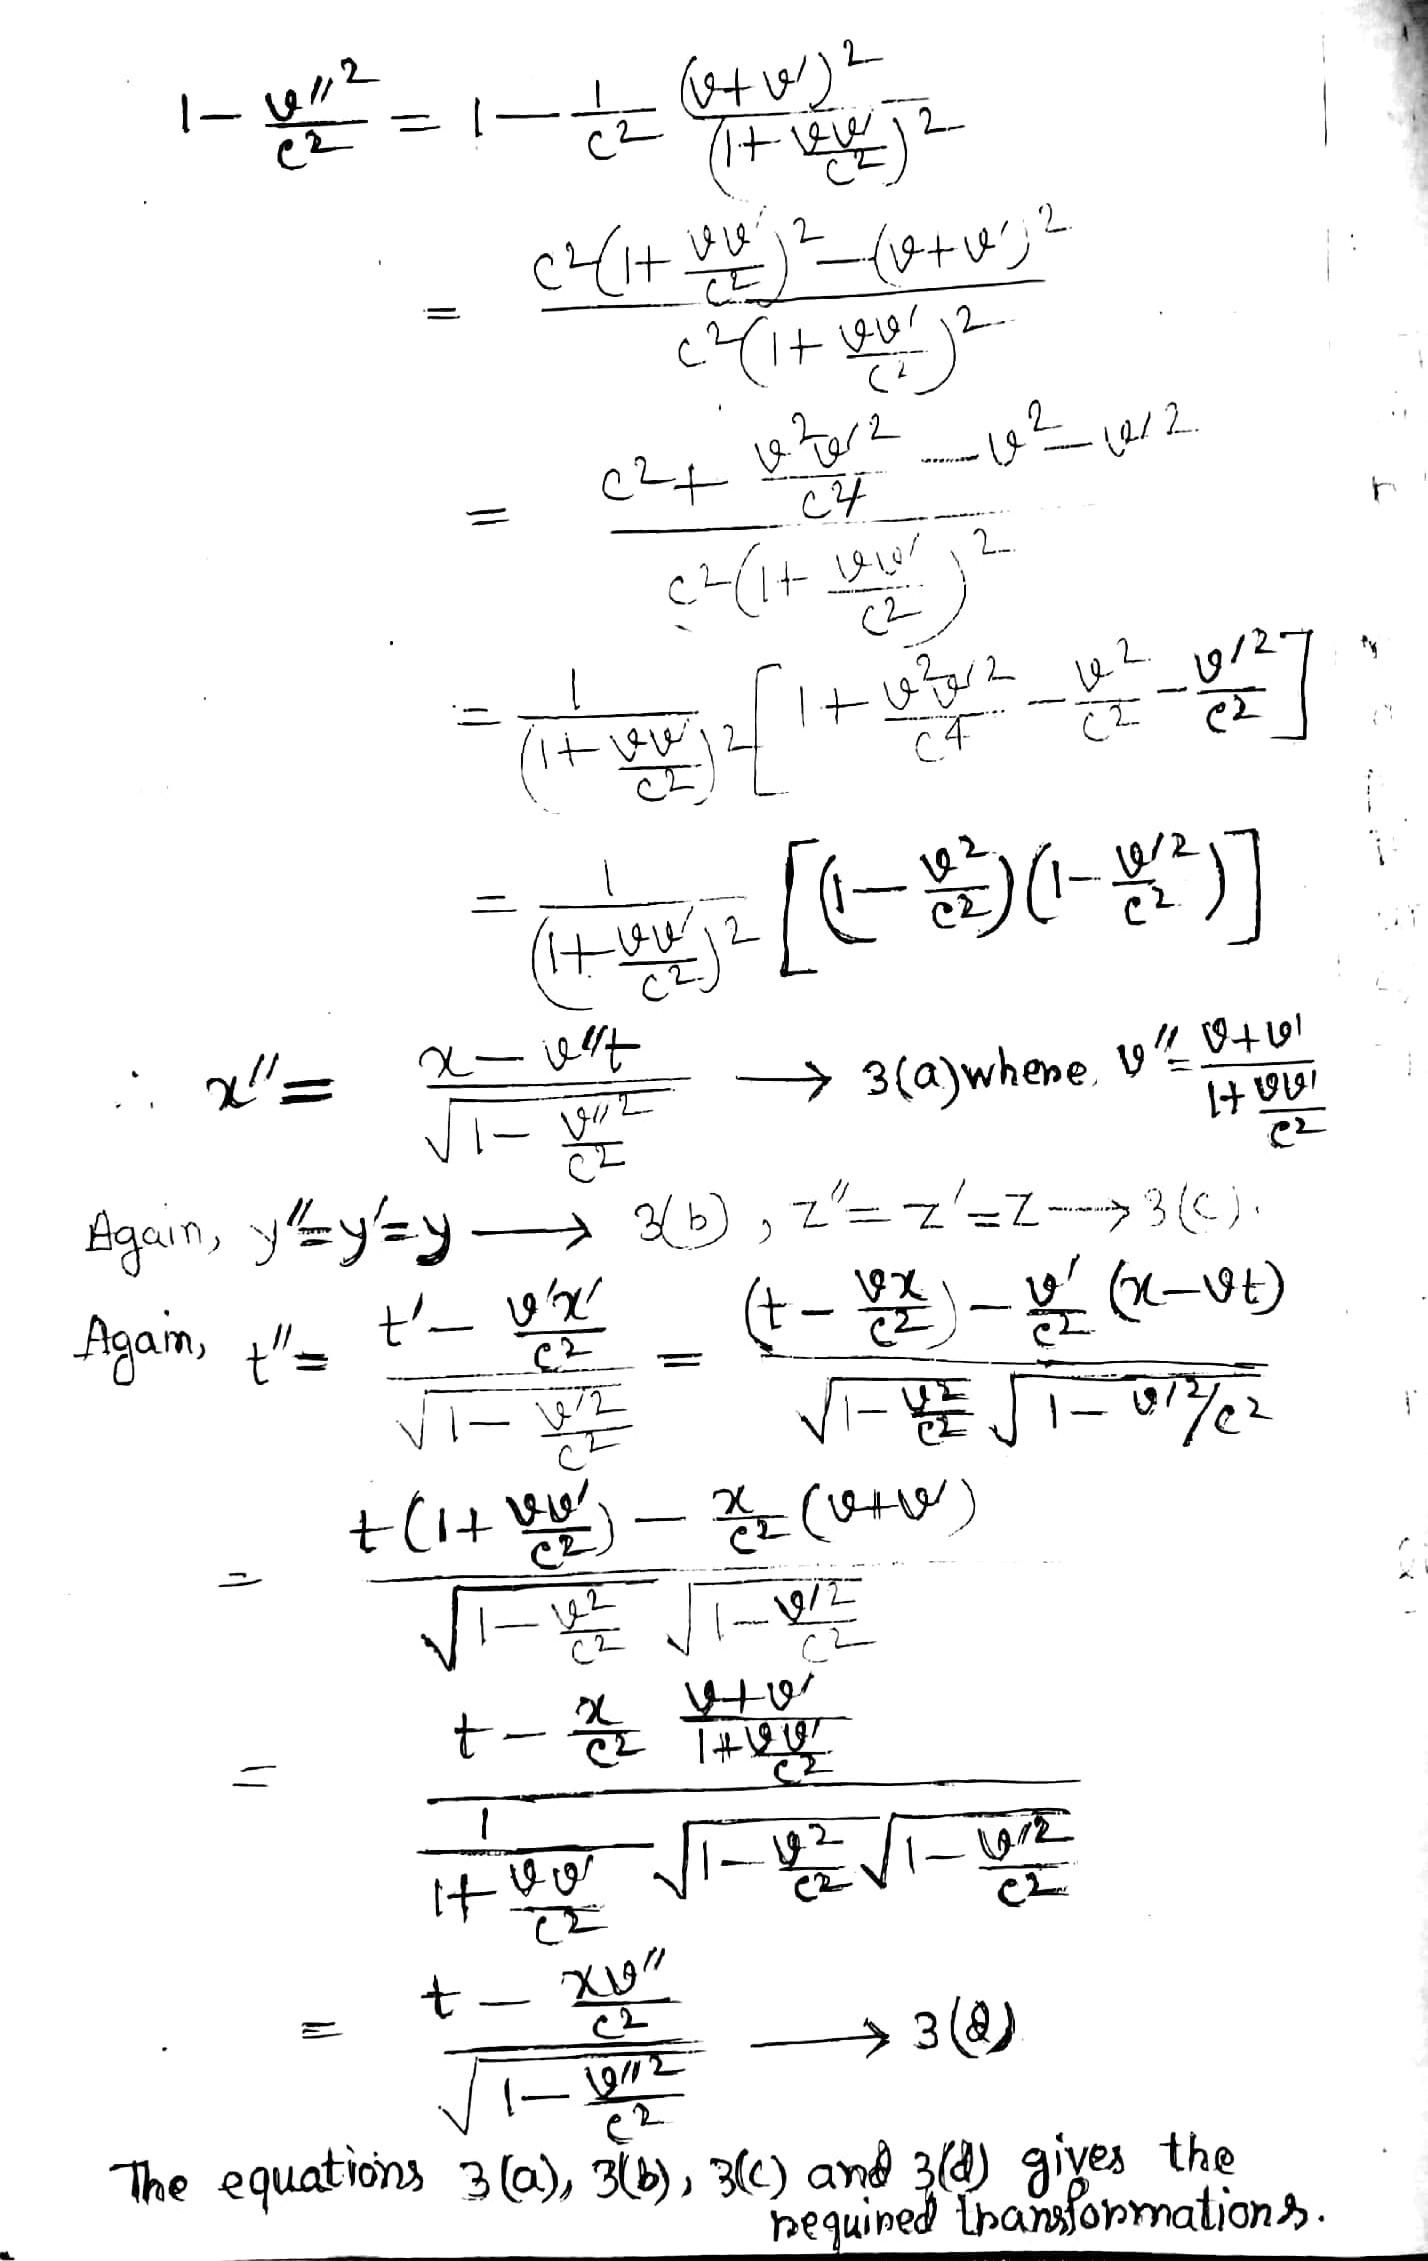 1 - v''²/c² = 1 - 1/c² (v+v')²/(1+vv'/c²)²
= [c²(1+vv'/c²)² - (v+v')²] / [c²(1+vv'/c²)²]
= [c² + v²v'²/c⁴ - v² - v'²] / [c²(1+vv'/c²)²]
= 1/(1+vv'/c²)² [1 + v²v'²/c⁴ - v²/c² - v'²/c²]
= 1/(1+vv'/c²)² [(1 - v²/c²)(1 - v'²/c²)]
∴ x'' = (x - v''t)/√(1 - v''²/c²) → 3(a) where, v'' = (v+v')/(1+vv'/c²)
Again, y''=y'=y → 3(b), z''=z'=z → 3(c).
Again, t'' = (t' - v'x'/c²)/√(1 - v'²/c²) = [(t - vx/c²) - v'/c² (x-vt)] / [√(1 - v²/c²) √(1 - v'²/c²)]
= [t(1+vv'/c²) - x/c² (v+v')] / [√(1 - v²/c²) √(1 - v'²/c²)]
= [t - x/c² (v+v')/(1+vv'/c²)] / [1/(1+vv'/c²) √(1 - v²/c²) √(1 - v'²/c²)]
= (t - xv''/c²)/√(1 - v''²/c²) → 3(d)
The equations 3(a), 3(b), 3(c) and 3(d) gives the
required transformations.